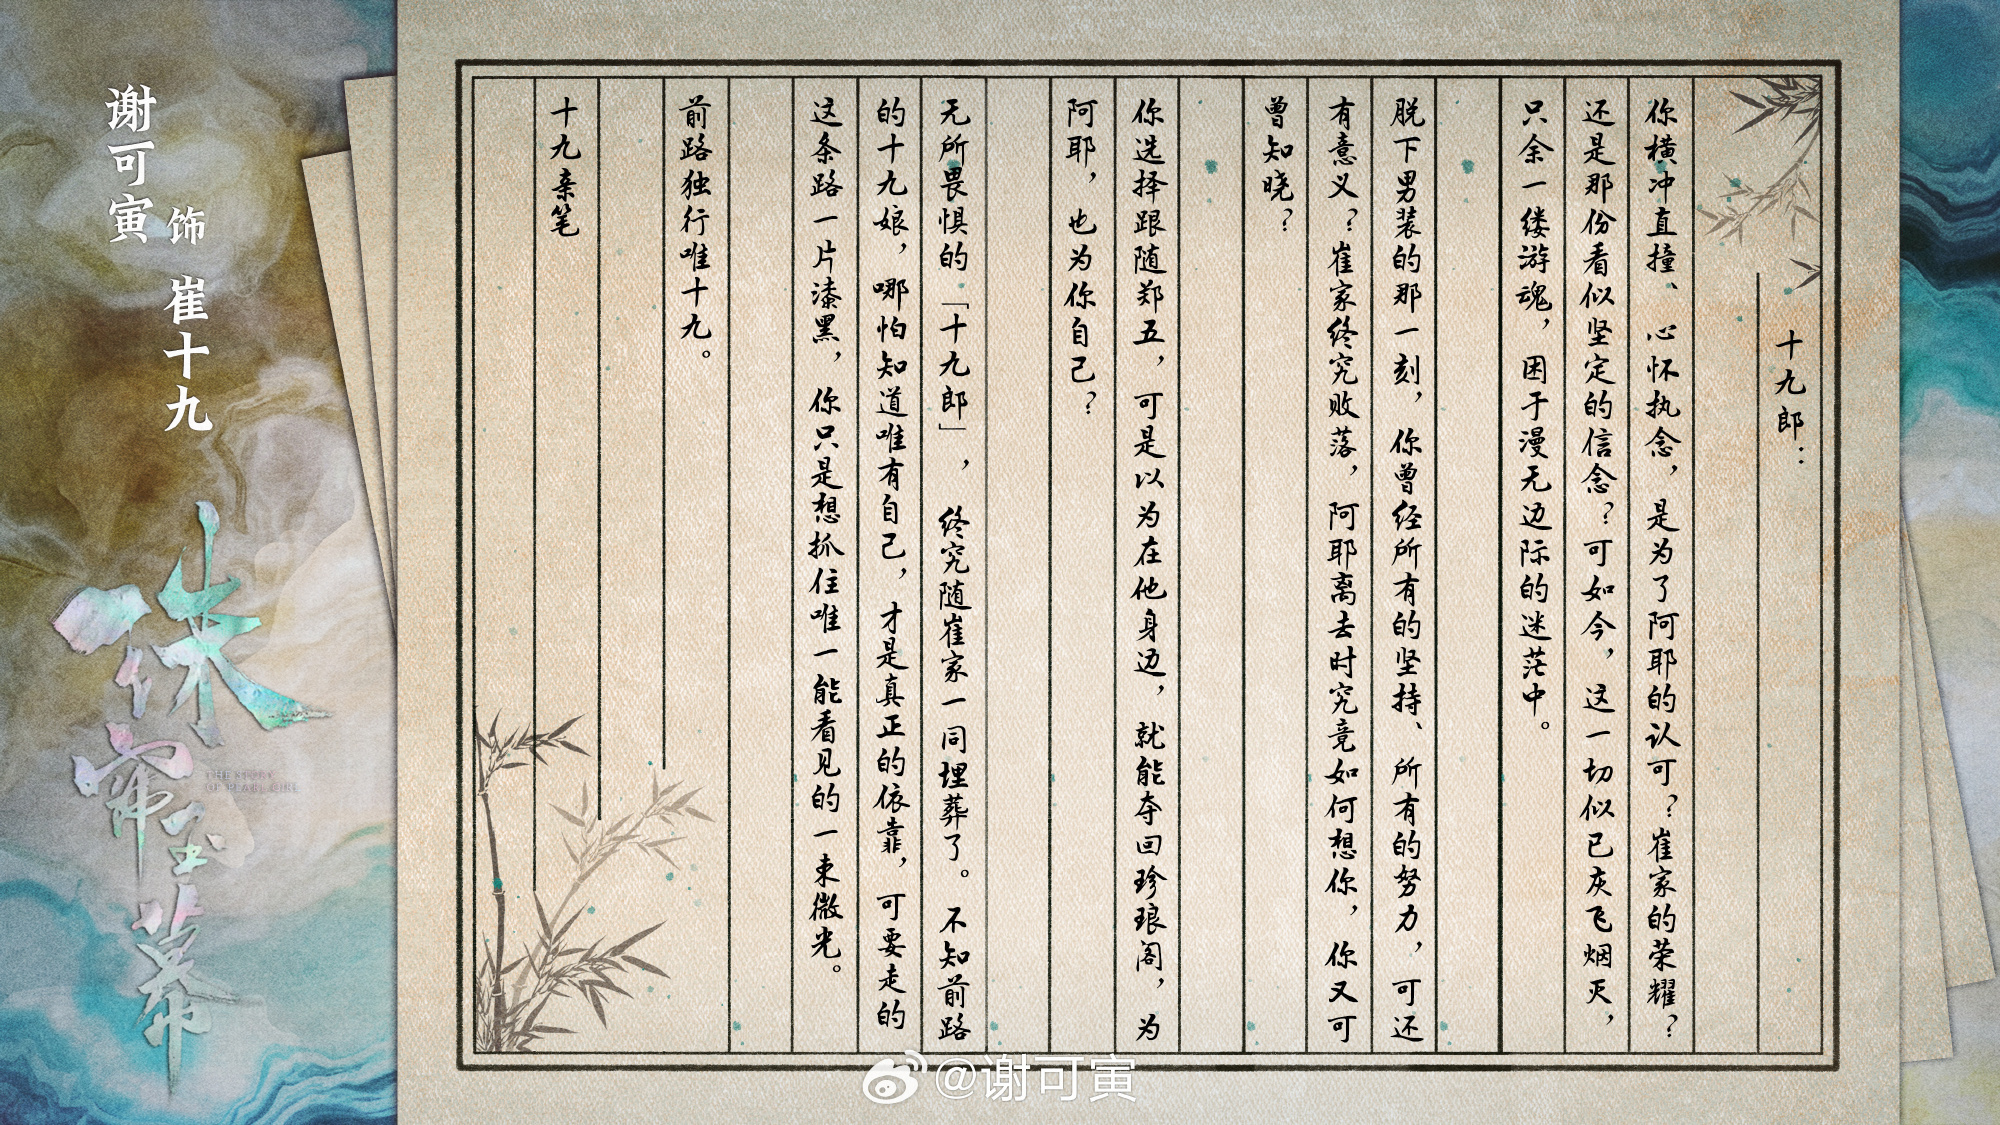 十九郎：
你横冲直撞、心怀执念，是为了阿耶的认可？崔家的荣耀？
还是那份看似坚定的信念？可如今，这一切似已灰飞烟灭，
只余一缕游魂，困于漫无边际的迷茫中。
脱下男装的那一刻，你曾经所有的坚持、所有的努力，可还
有意义？崔家终究败落，阿耶离去时究竟如何想你，你又可
曾知晓？
你选择跟随郑五，可是以为在他身边，就能夺回珍琅阁，为
阿耶，也为你自己？
无所畏惧的「十九郎」，终究随崔家一同埋葬了。不知前路
的十九娘，哪怕知道唯有自己，才是真正的依靠，可要走的
这条路一片漆黑，你只是想抓住唯一能看见的一束微光。
前路独行唯十九。
十九亲笔
谢可寅
饰 崔十九
珠帘玉幕
THE STORY
OF PEARL GIRL
@谢可寅